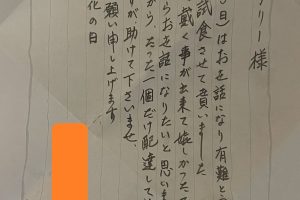 リー様
日)はお世話になり有難と
試食させて貰いました
戴く事が出来て嬉しかった
らお世話になりたいと思いま
から、たった一個だけ配達して
すが、助けて下さいませ、
願い申し上げます
化の日